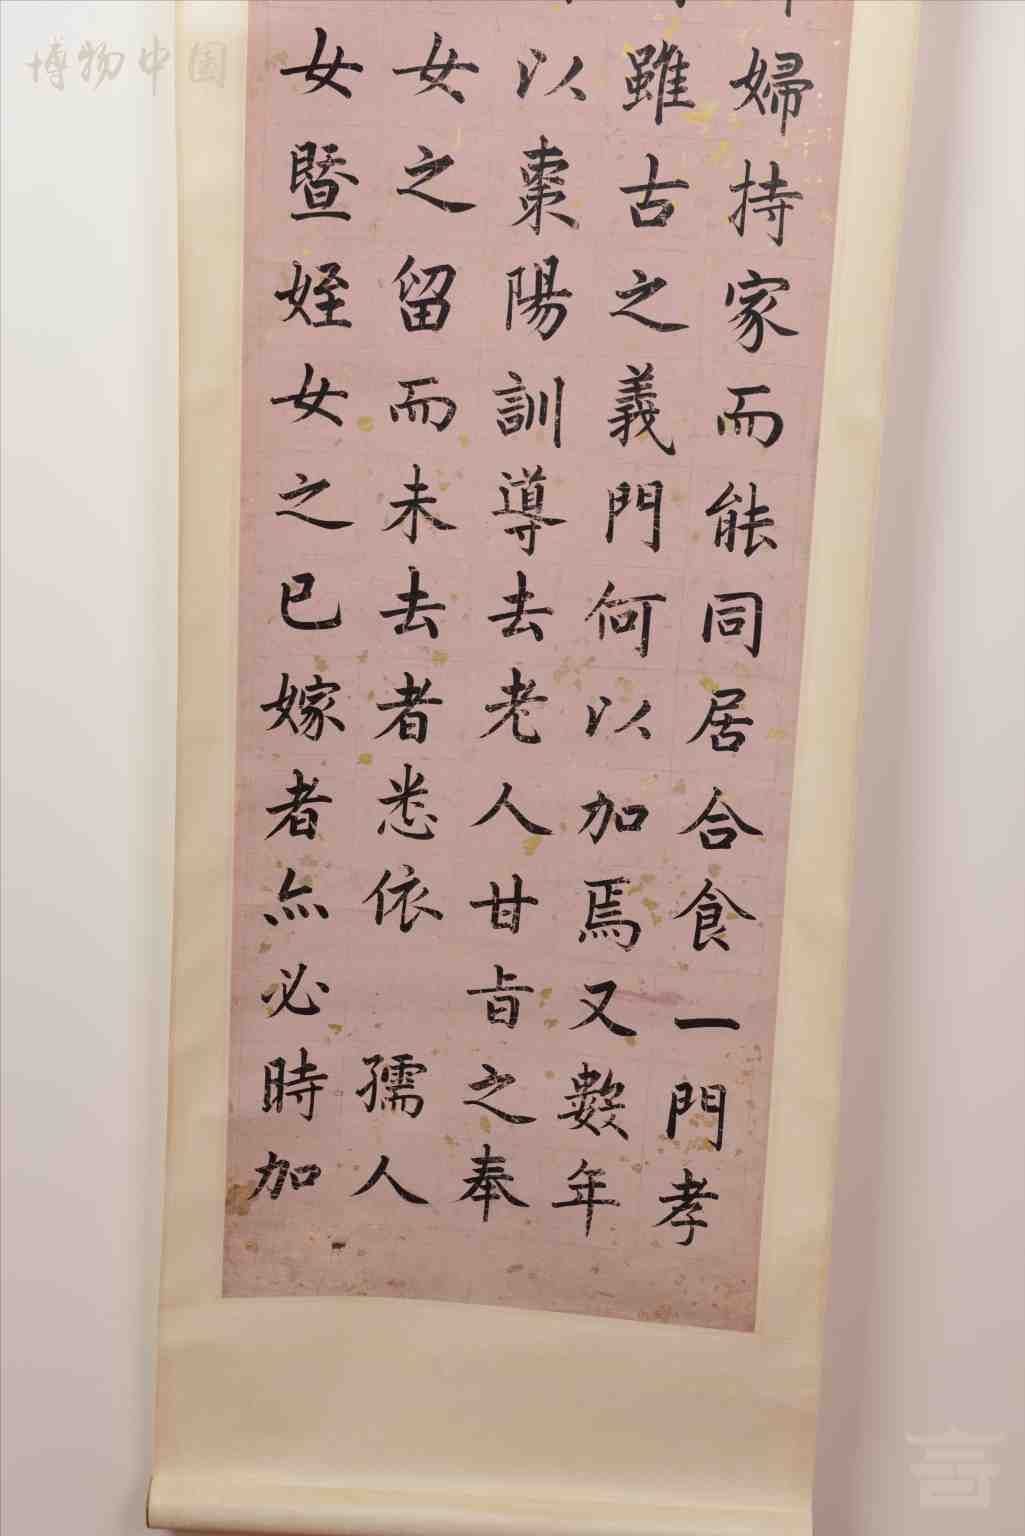 婦持家而能同居合食一門孝
雖古之義門何以加焉又數年
以棗陽訓導去老人甘旨之奉
女之留而未去者悉依 孺人
女暨姪女之已嫁者亦必時加
博物中国